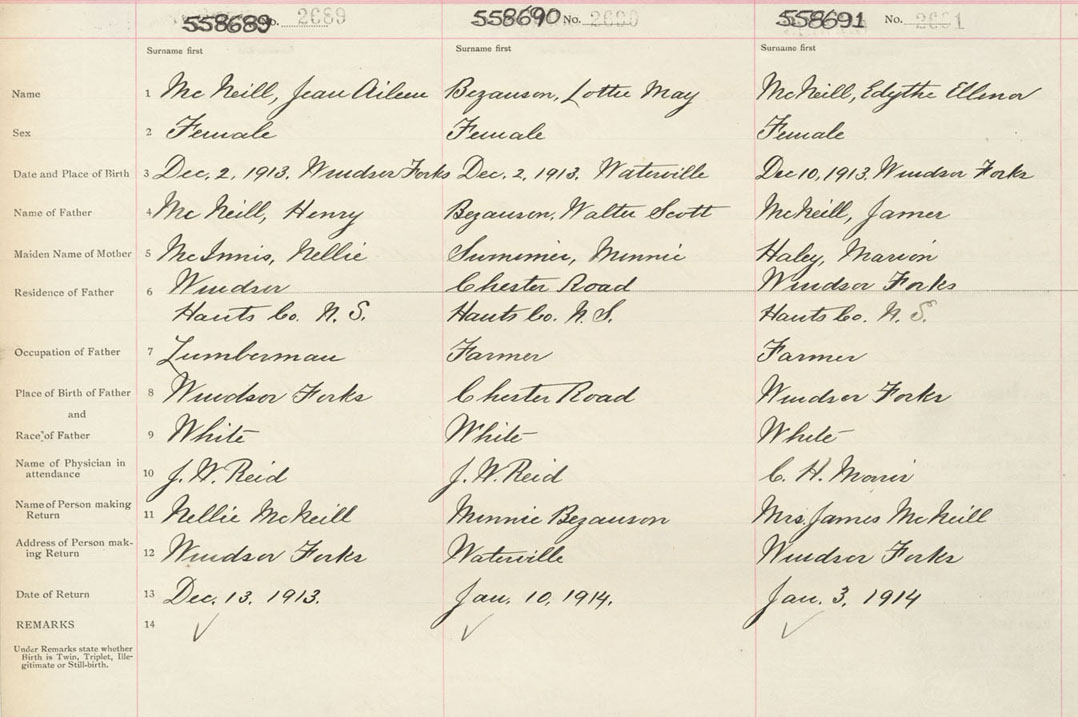 558689 No. 2689 558690 No. 2690 558691 No. 2691
Surname first Surname first Surname first
Name 1 McNeill, Jean Aileen Bezanson, Lottie May McNeill, Edythe Ellenor
Sex 2 Female Female Female
Date and Place of Birth 3 Dec. 2, 1913. Windsor Forks Dec. 2, 1913. Waterville Dec 10, 1913. Windsor Forks
Name of Father 4 McNeill, Henry Bezanson, Walter Scott McNeill, James
Maiden Name of Mother 5 McInnis, Nellie Minnie Haley, Marion
Residence of Father 6 Windsor Chester Road Windsor Forks
Hants Co. N. S. Hants Co. N. S. Hants Co. N. S.
Occupation of Father 7 Lumberman Farmer Farmer
Place of Birth of Father 8 Windsor Forks Chester Road Windsor Forks
and
Race of Father 9 White White White
Name of Physician in
attendance 10 J. W. Reid J. W. Reid C. H. Morris
Name of Person making
Return 11 Nellie McNeill Minnie Bezanson Mrs. James McNeill
Address of Person mak-
ing Return 12 Windsor Forks Waterville Windsor Forks
Date of Return 13 Dec. 13. 1913. Jan. 10, 1914. Jan. 3, 1914
REMARKS 14
Under Remarks state whether
Birth is Twin, Triplet, Ille-
gitimate or Still-birth.